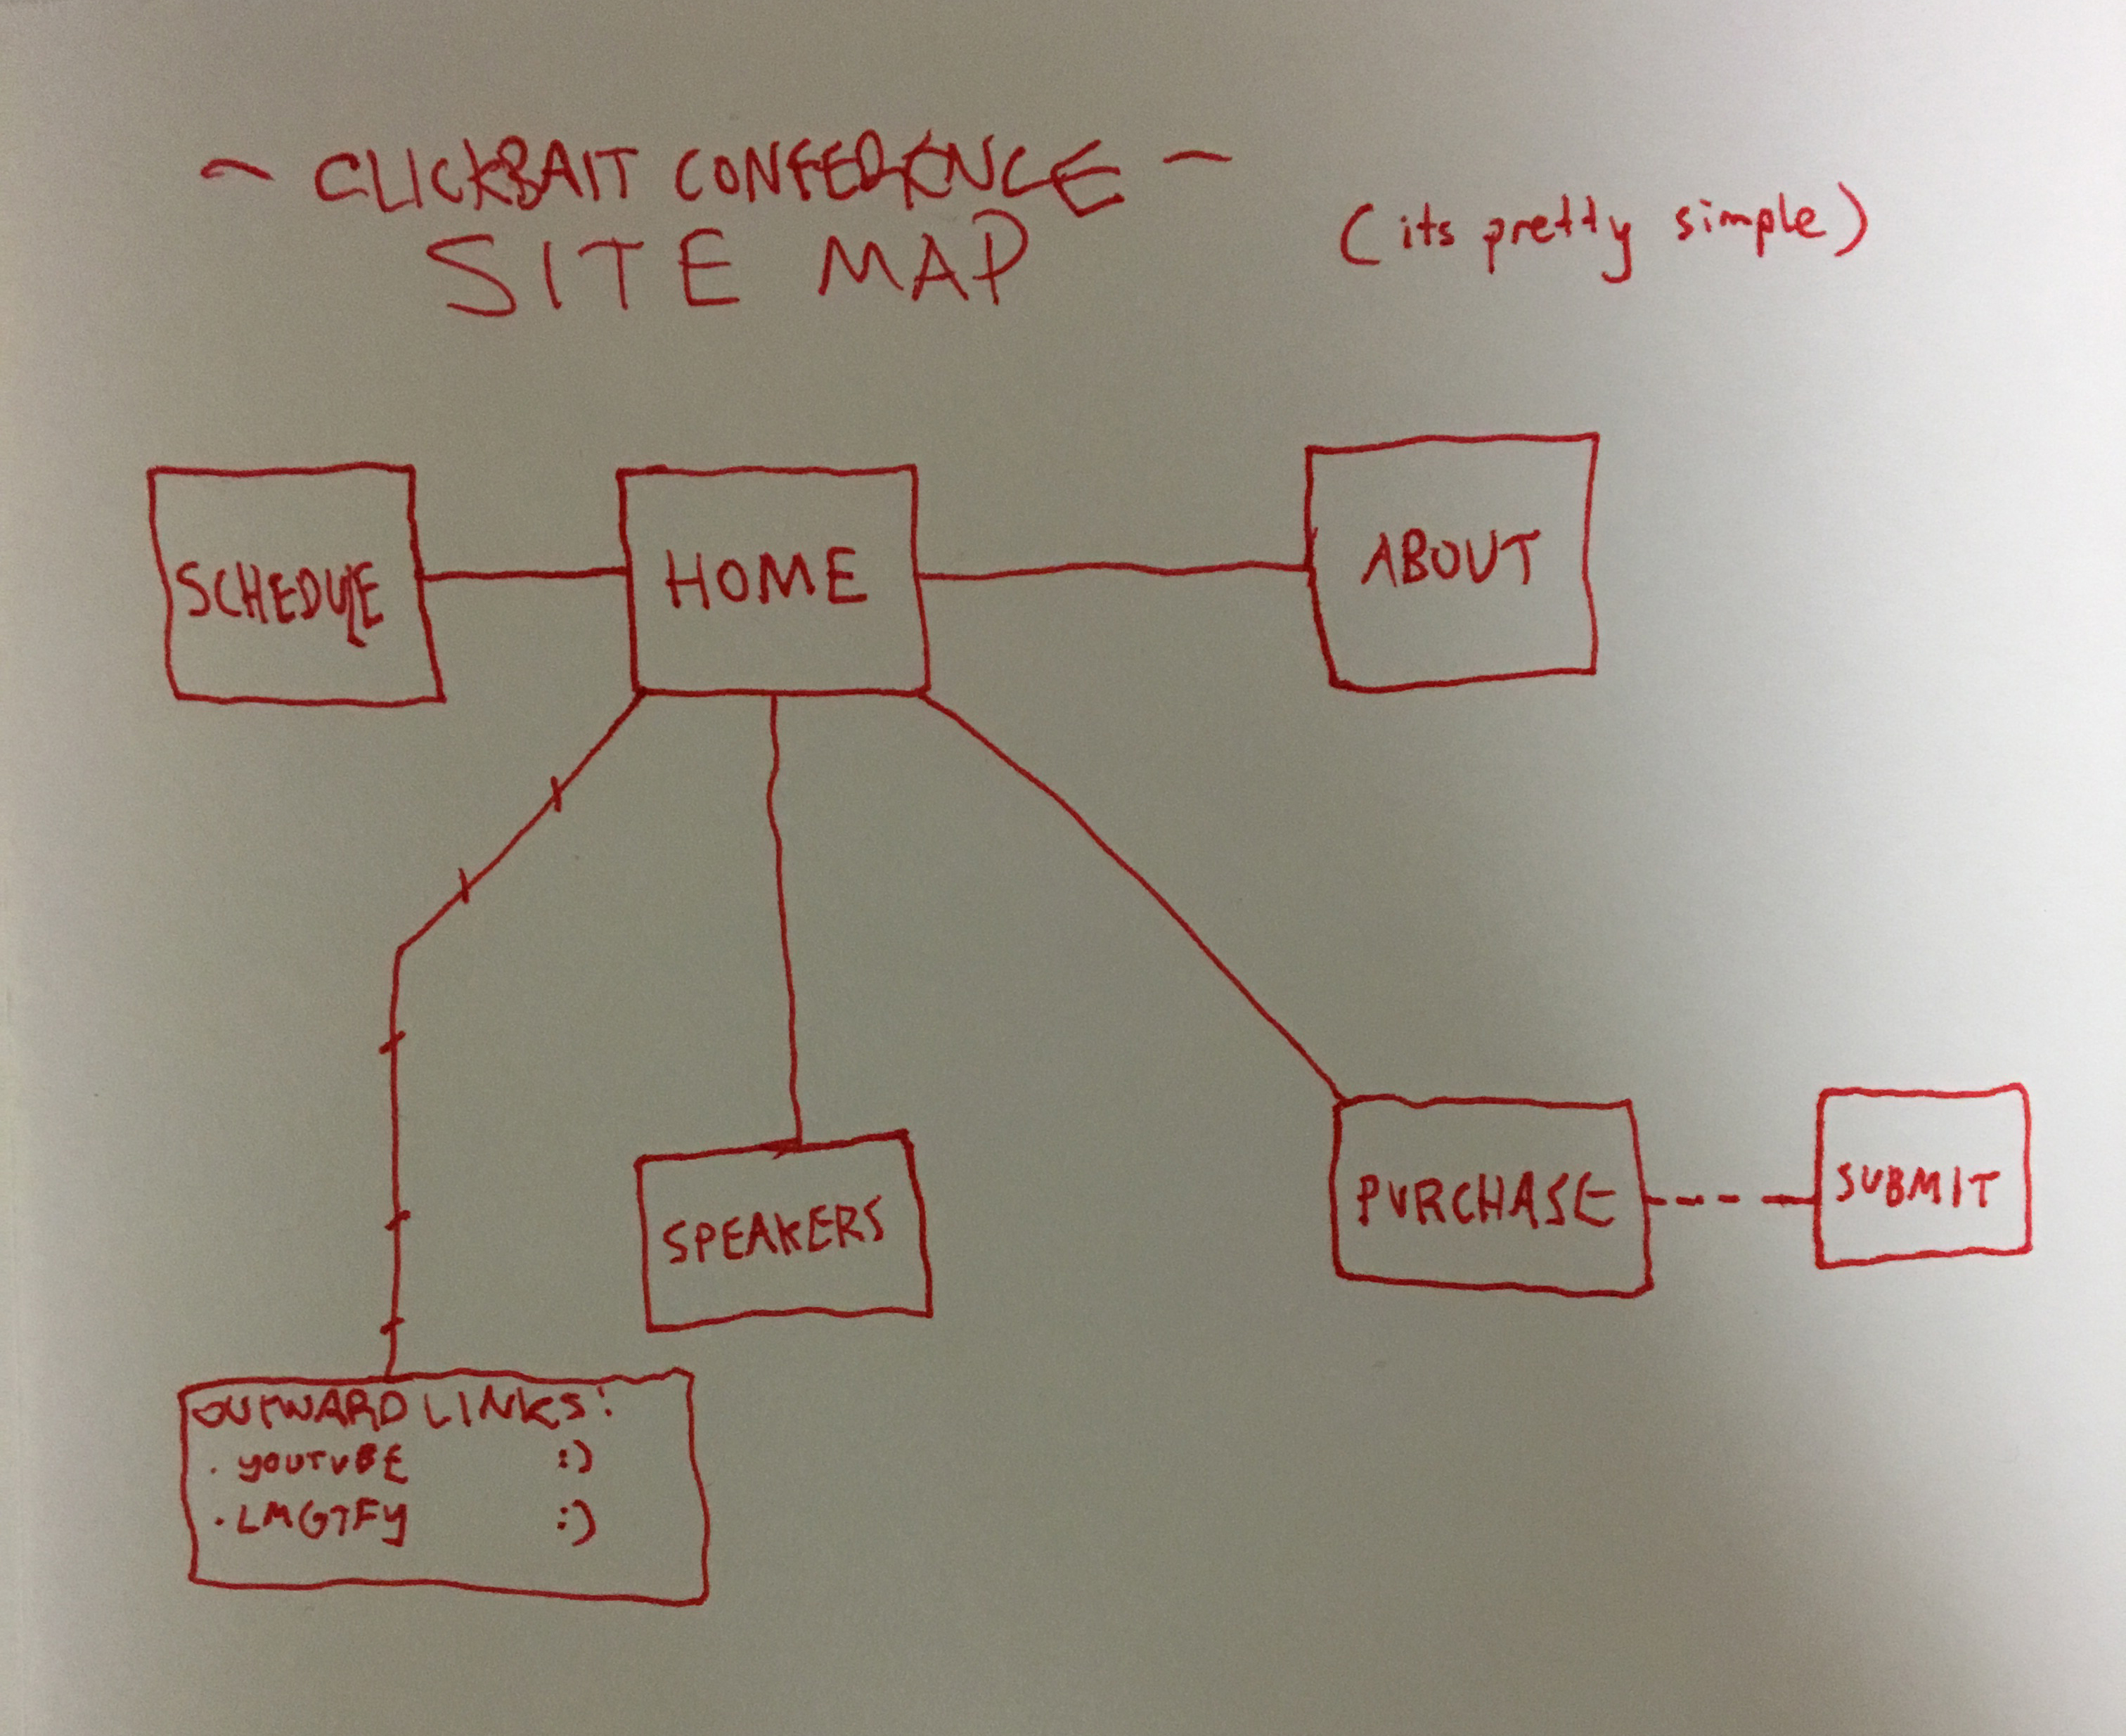 ~ CLICKBAIT CONFERENCE ~
SITE MAP
(its pretty simple)
SCHEDULE
HOME
ABOUT
SPEAKERS
PURCHASE
SUBMIT
OUTWARD LINKS:
. YOUTUBE :)
. LMGTFY :)